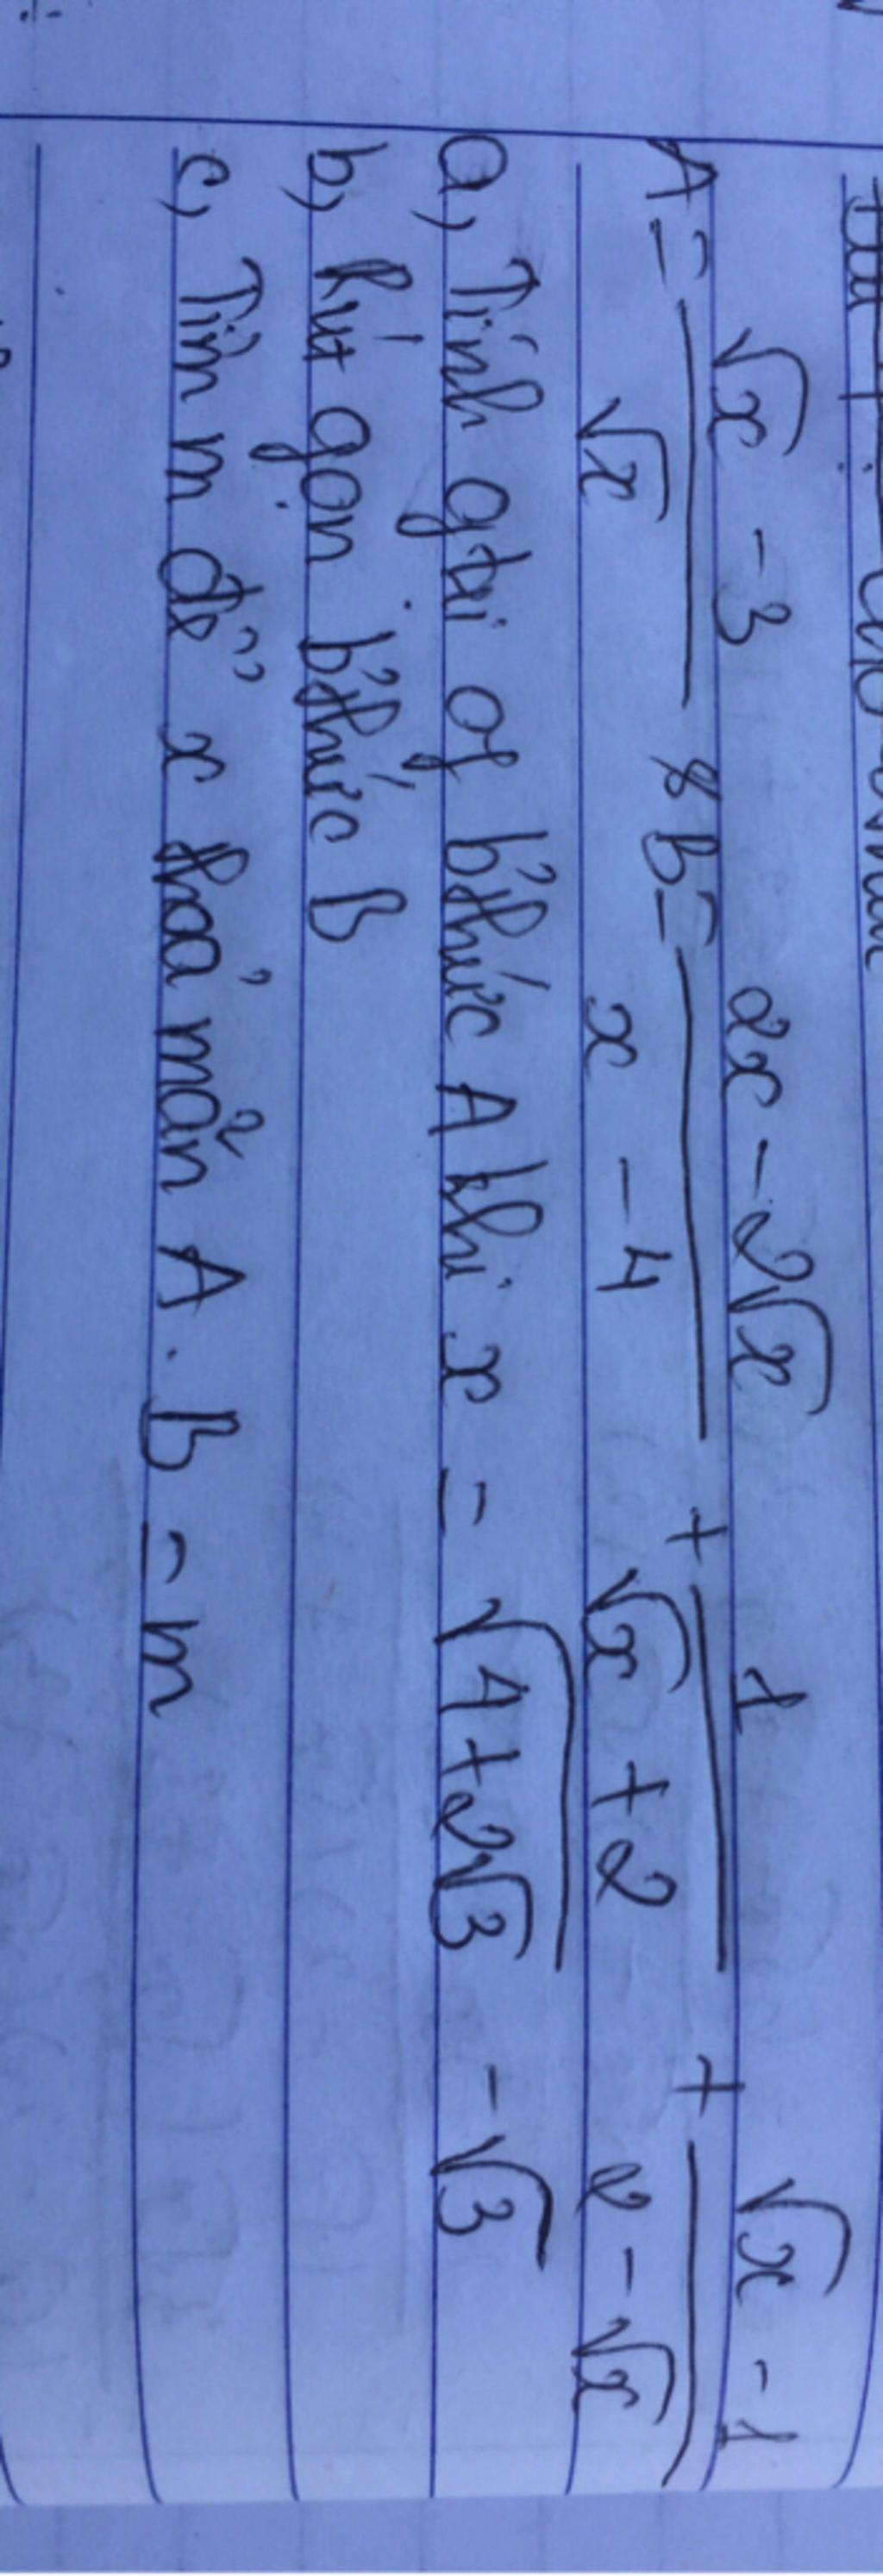 A = (√x - 3)/√x & B = (2x - 2√x)/(x - 4) + 1/(√x + 2) + (√x - 1)/(2 - √x)
a, Tính gtri of b'thức A khi x = √(4+2√3) - √3
b, Rút gọn b'thức B
c, Tìm m để x thoả mãn A . B = m